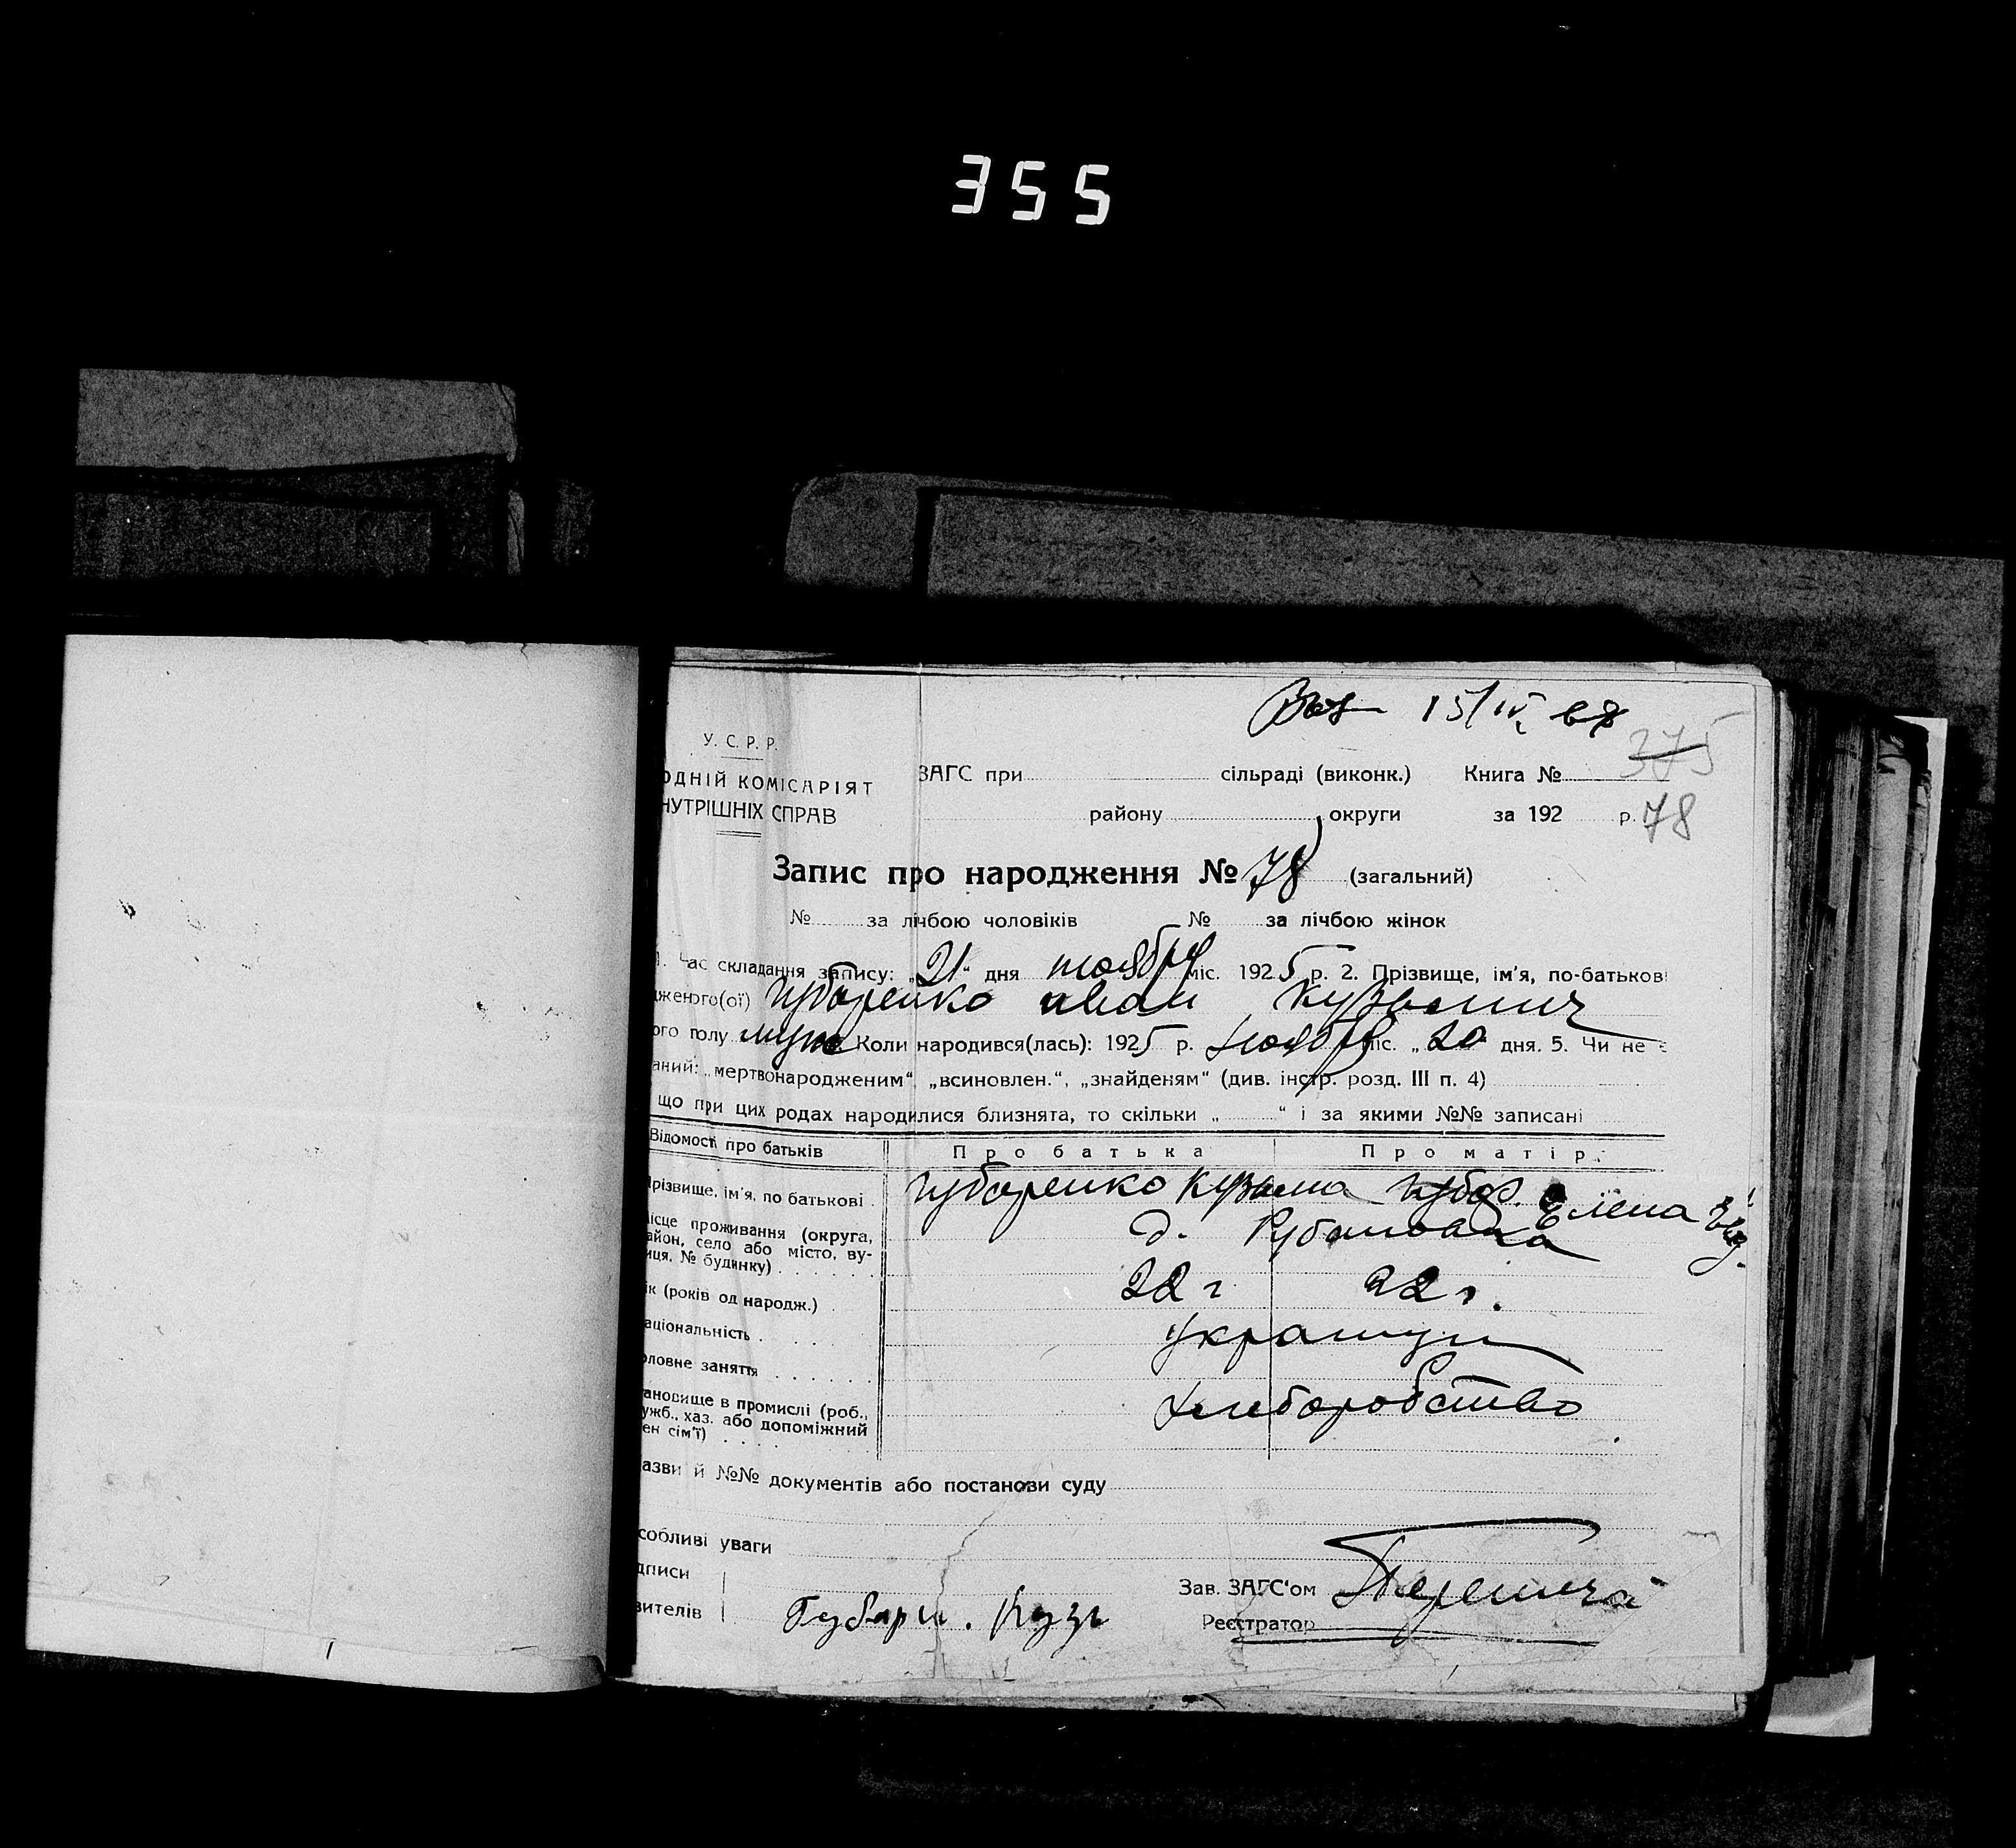 355
15/IV
У. С. Р. Р.
ОДНІЙ КОМІСАРІЯТ
НУТРІШНІХ СПРАВ
ЗАГС при сільраді (виконк.) Книга № 375
району округи за 192 р. 78
Запис про народження № 78 (загальний)
№ за лічбою чоловіків № за лічбою жінок
1. Час складання запису: „21“ дня ноября міс. 1925 р. 2. Прізвище, ім'я, по-батькові
дженого(ої) Губаренко Иван Кузьмич
ого полу муж Коли народився(лась): 1925 р. ноября міс. „20“ дня. 5. Чи не є
аний: „мертвонародженим“, „всиновлен.“, „знайденям“ (див. інстр. розд. III п. 4)
що при цих родах народилися близнята, то скільки „ “ і за якими №№ записані
Відомості про батьків Про батька Про матір
Прізвище, ім'я, по батькові Губаренко Кузьма Губар. Елена
Місце проживання (округа, район, село або місто, ву-
лиця, № будинку) д. Рубановка
ік (років од народж.) 22 г 22 г.
аціональність Украинцы
оловне заняття
тановище в промислі (роб., ужб., хаз. або допоміжний
ен сім'ї) хлеборобство
азви й №№ документів або постанови суду
собливі уваги
дписи
вителів Губарн. Кузь
Зав. ЗАГС'ом
Реєстратор